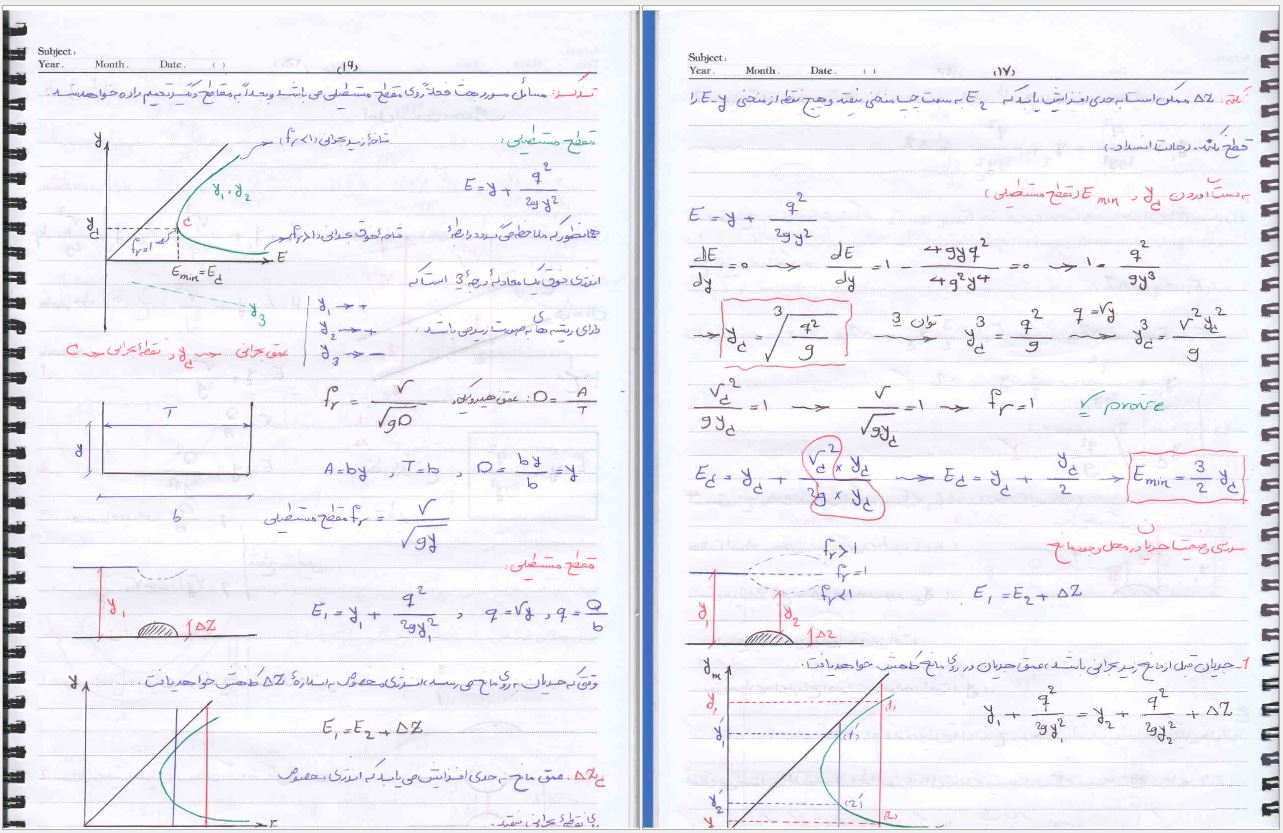 Subject:
Year. Month. Date. ( ) (16)
تذکر: مسائل مورد بحث فعلاً روی مقطع مستطیلی می باشد و بعداً به مقاطع دیگر تعمیم داده خواهد شد.
مقطع مستطیلی:
y
شاخه زیر بحرانی (fr<1)
y1, y2
E = y + q²/2gy²
yc
C
fr=1
شاخه فوق بحرانی (fr>1)
E
Emin = Ec
همانطور که ملاحظه می گردد رابطه
انرژی فوق یک معادله درجه 3 است که
y3
y1 → +
y2 → +
y3 → −
دارای ریشه های به صورت زیر می باشد:
عمق بحرانی → yc و نقطه بحرانی → C
fr = V/√gD
عمق هیدرولیکی: D = A/T
T
y
b
A = by , T = b , D = by/b = y
مقطع مستطیلی fr = V/√gy
مقطع مستطیلی:
y1
ΔZ
E1 = y1 + q²/2gy1² , q = Vy , q = Q/b
وقتی که جریان به روی مانع می رسد، انرژی مخصوص به اندازه ΔZ کاهش خواهد یافت.
y
E1 = E2 + ΔZ
ΔZc: عمق مانع به حدی افزایش می یابد که انرژی مخصوص
E
به نقطه بحرانی بیفتد.
Subject:
Year. Month. Date. ( ) (17)
نکته: ΔZ ممکن است به حدی افزایش یابد که E2 به سمت چپ منحنی بیفتد و هیچ نقطه از منحنی E-y را
قطع نکند. (حالت انسداد)
به دست آوردن yc و Emin (مقطع مستطیلی)
E = y + q²/2gy²
dE/dy = 0 → dE/dy = 1 − 4gyq²/4g²y⁴ = 0 → 1 = q²/gy³
→ yc = ³√(q²/g) توان 3 → yc³ = q²/g q=Vy → yc³ = V²yc²/g
Vc²/gyc = 1 → V/√gyc = 1 → fr = 1 ✓ prove
Ec = yc + Vc² × yc/2g × yc → Ec = yc + yc/2 → Emin = 3/2 yc
بررسی وضعیت جریان در محل وجود مانع
fr>1
fr=1
fr<1
y1
y2
ΔZ
E1 = E2 + ΔZ
1- جریان قبل از مانع زیر بحرانی باشد، عمق جریان در روی مانع کاهش خواهد یافت.
ym
y1
(1)
y1 + q²/2gy1² = y2 + q²/2gy2² + ΔZ
y1′
(1′)
y2′
(2′)
(2)